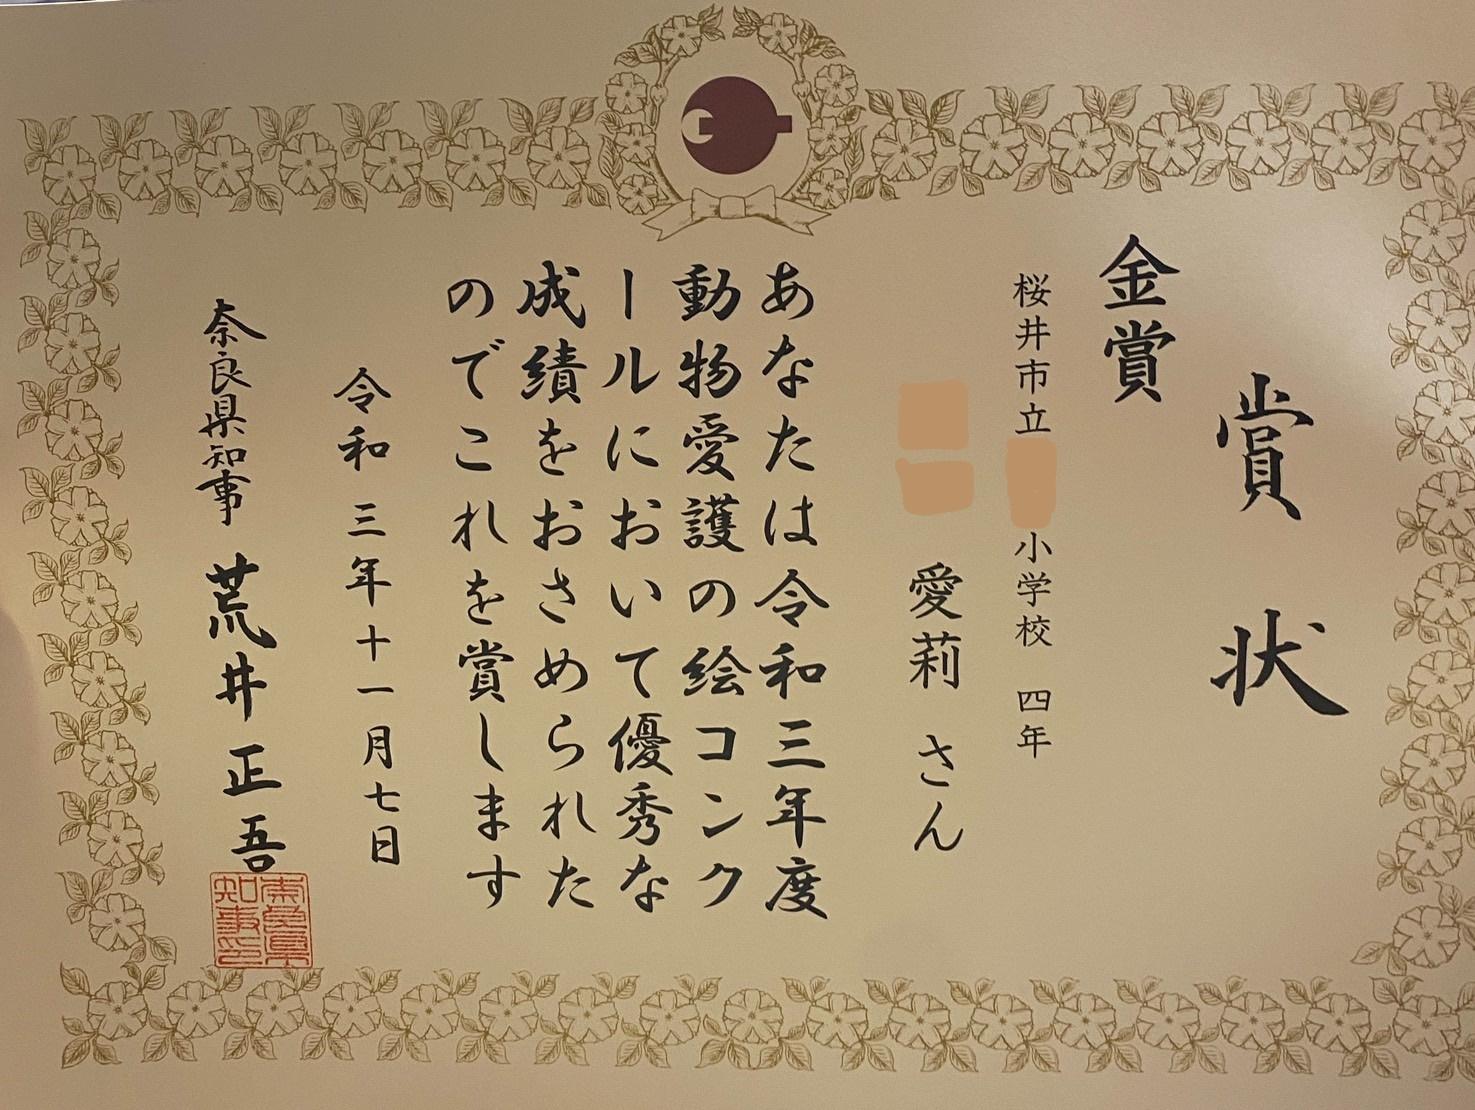 賞状
金賞
桜井市立 小学校 四年
愛莉 さん
あなたは令和三年度
動物愛護の絵コンク
ールにおいて優秀な
成績をおさめられた
のでこれを賞します
令和三年十一月七日
奈良県知事 荒井正吾
奈良県
知事印